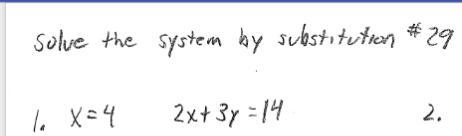 Solve the system by substitution #29
1. x=4 2x+3y=14 2.